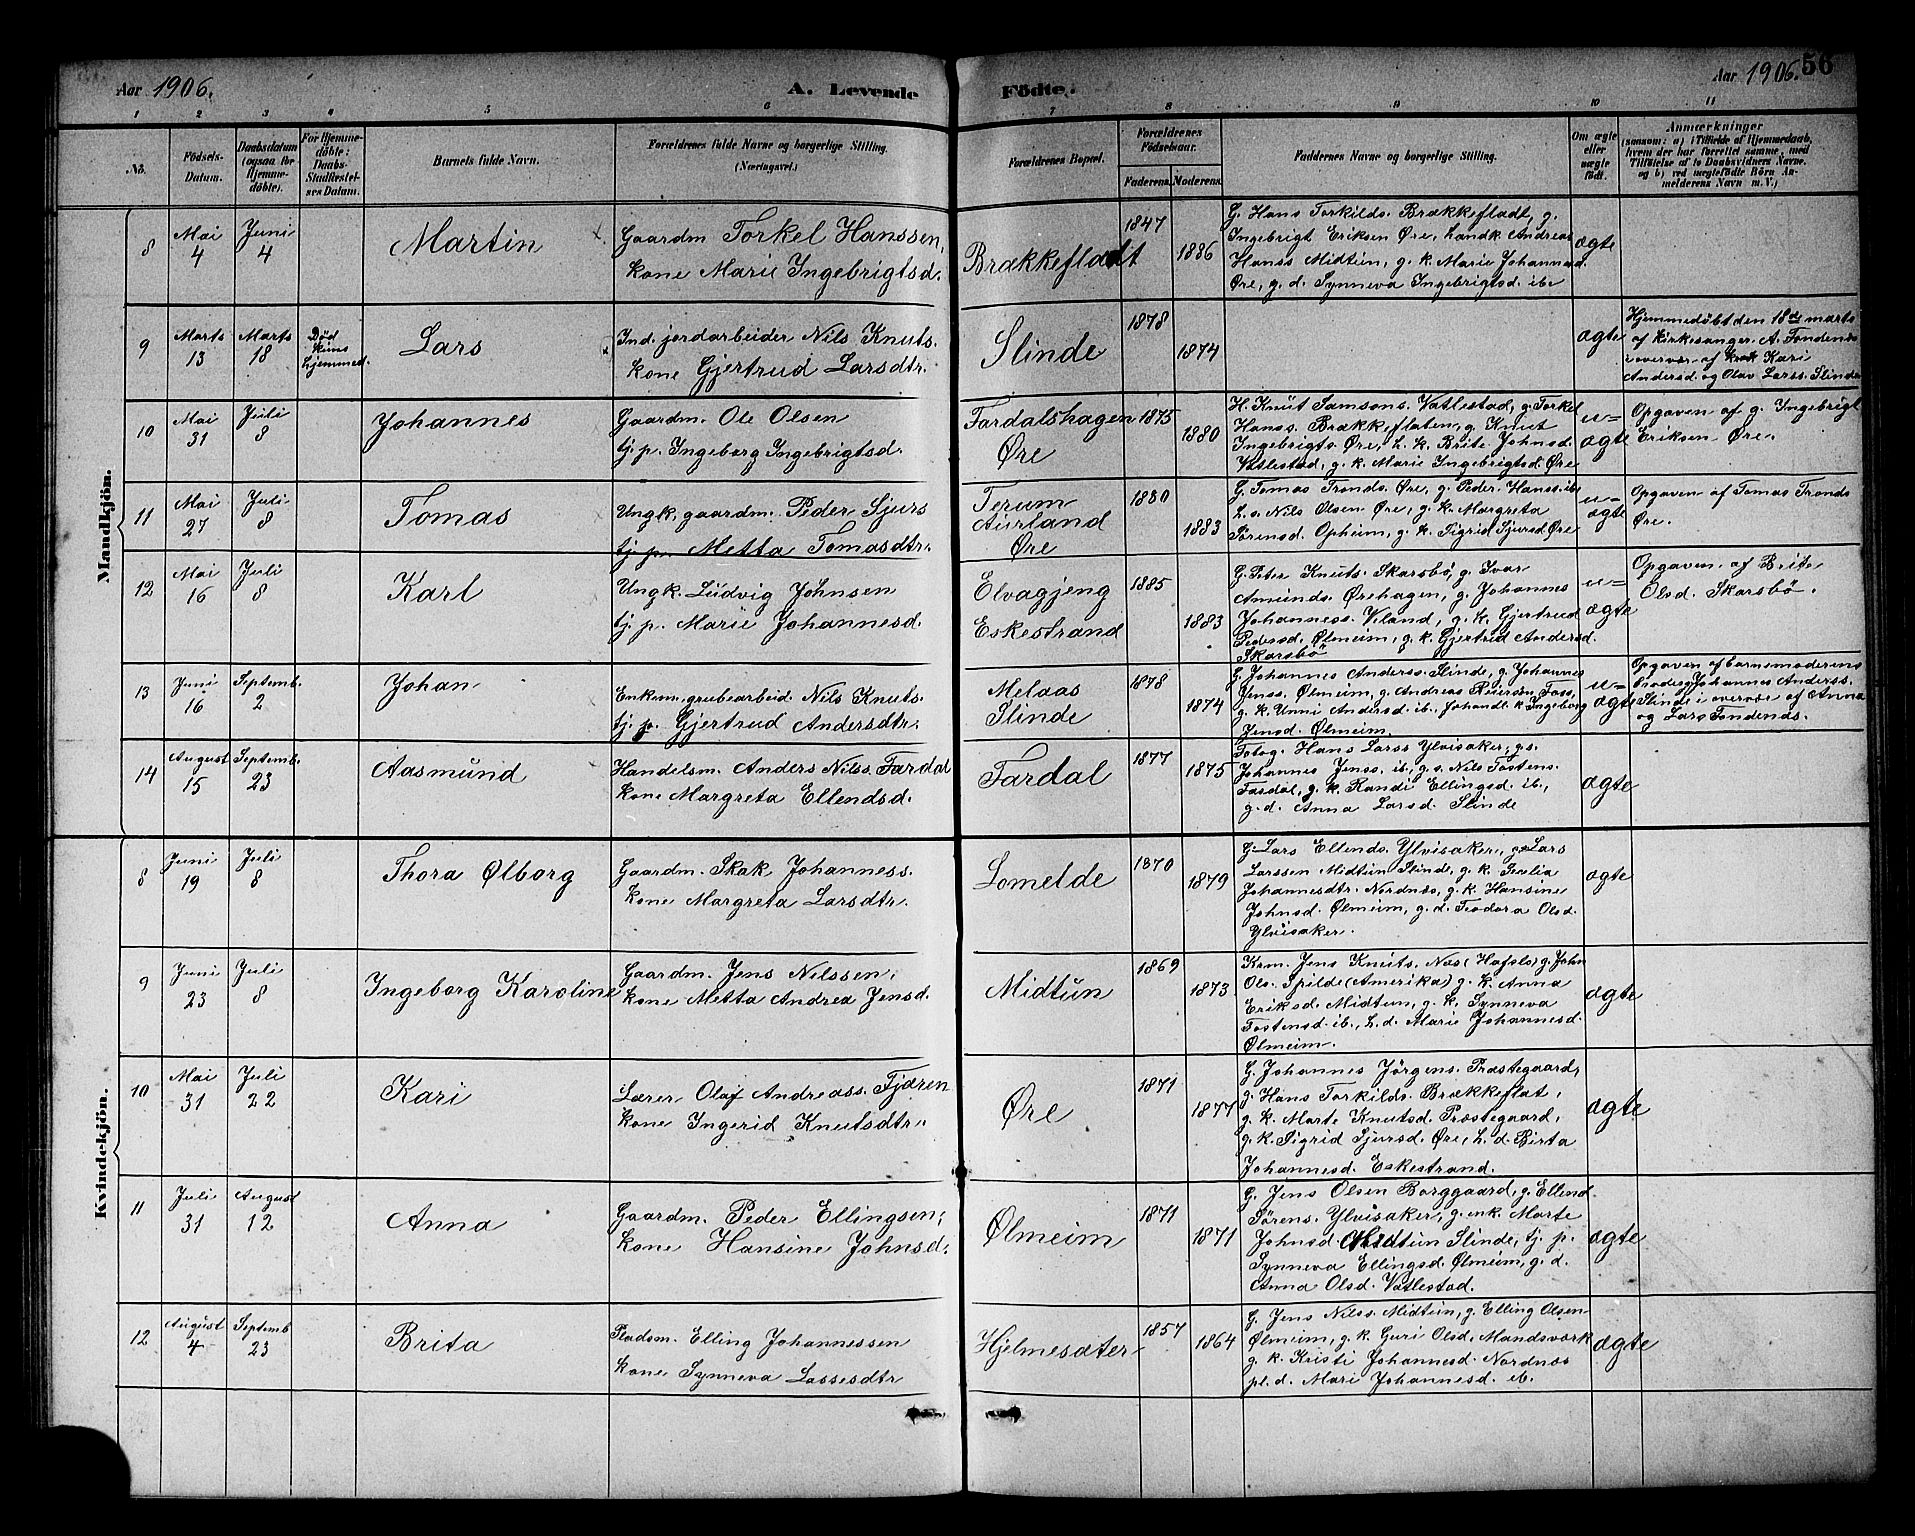 Aar 1906.
A. Levende Födte.
Aar 1906. 56
1 2 3 4 5 6 7 8 9 10 11
No.
Födsels-
Datum.
Daabsdatum
(ogsaa for
Hjemme-
döbte).
For Hjemme-
döbte:
Daabs-
Stadfæstel-
ses Datum.
Barnets fulde Navn.
Forældrenes fulde Navne og borgerlige Stilling.
(Næringsvei.)
Forældrenes Bopæl.
Forældrenes
Födselsaar.
Faderens. Moderens.
Faddernes Navne og borgerlige Stilling.
Om ægte
eller
uægte
født.
Anmærkninger
(saasom: a) i Tilfælde af Hjemmedaab,
hvem der har forrettet samme, med
Tilföielse af to Daabsvidners Navne.
og b) ved uægtefödte Börn An-
melderens Navn m. V.)
Mandkjön.
8
Mai
4
Juni
4
Martin
Gaardm. Torkel Hanssen,
kone Marie Ingebrigtsd.
Brækkefladt
1847
1886
G. Hans Torkilds. Brækkefladt, g.
Ingebrigt Eriksen Øre, Landk. Andreas
Hanss. Midtün, g. k. Marie Johannesd.
Øre, g. d. Synneva Ingebrigtsd. ib.
ægte
9
Marts
13
Marts
18
Død
kuns
hjemmed.
Lars
Ind. jordarbeider Nils Knuts.
kone Gjertrud Larsdtr.
Slinde
1878
1874
ægte
Hjemmedøbt den 18de marts
af kirkesanger A. Fondenes
i overvær af Kari
Andersd. og Olav Larss. Slinde
10
Mai
31
Juli
8
Johannes
Gaardm. Ole Olsen
tj. p. Ingeborg Ingebrigtsd.
Fardalshagen
Øre
1875
1880
H. Knüt Samsons. Vatlestad, g. Torkel
Hanss. Brækkeflaten, g. Knut
Ingebrigts. Øre, h. k. Brite Johnsd.
Vatlestad, g. k. Marie Ingebrigtsd. Øre
u=
ægte
Opgaven af g. Ingebrigt
Eriksen Øre.
11
Mai
27
Juli
8
Tomas
Ungk. gaardm. Peder Sjurs
tj. p. Metta Tomasdtr.
Terum
Aurland
Øre
1880
1883
G. Tomas Tronds. Øre, g. Peder Hanss. ib.
h. s. Nils Olsen Øre, g. k. Margreta
Sørensd. Opheim, g. k. Sigrid Sjursd. Øre
u=
ægte
Opgaven af Tomas Tronds
Øre.
12
Mai
16
Juli
8
Karl
Ungk. Lüdvig Johnsen
tj. p. Marie Johannesd.
Elvagjeng
Eskestrand
1885
1883
G. Peter Knuts. Skarsbø, g. Ivar
Amunds. Ørehagen, g. Johannes
Johanness. Veland, g. k. Gjertrud
Pedersd. Ølmeim, g. k. Gjertrid Andersd.
Skarsbø
u=
ægte
Opgaven af Brite
Olsd. Skarsbø.
13
Juni
16
Septemb.
2
Johan
Enkem. grubearbeid. Nils Knuts.
tj. p. Gjertrud Andersdtr.
Melaas
Slinde
1878
1874
G. Johannes Anderss. Slinde, g. Johannes
Jenss. Ølmeim, g. Andreas Reiersen Foss,
g. k. Unni Andersd. ib. Johandl. k. Ingeborg
Jensd. Ølmeim.
u=
ægte
Opgaven af barnemoderens
broder g. Johannes Anderss.
Slinde i overvær af Anna
og Lars Fondenes.
14
August
15
Septemb.
23
Aasmünd
Handelsm. Anders Nilss. Fardal
kone Margreta Ellendsd.
Fardal
1877
1875
Fotog. Hans Larss Ylvisaker, gs.
Johannes Jenss. ib., g. s. Nils Tostens.
Fardal, g. k. Randi Ellingsd. ib.,
g. d. Anna Larsd. Slinde
ægte
Kvindekjön.
8
Juni
19
Juli
8
Thora Ølborg
Gaardm. Skak Johanness.
kone Margreta Larsdtr.
Lomelde
1870
1879
G. Lars Ellends. Ylvisaker, g. Lars
Larssen Midtün Slinde, g. k. Serlia
Johannesdtr. Nordnæs, g. k. Hansine
Johnsd. Ølmeim, g. d. Teodora Olsd.
Ylvisaker.
ægte
9
Juni
23
Juli
8
Ingeborg Karoline
Gaardm. Jens Nilssen,
kone Metta Andrea Jensd.
Midtün
1869
1873
Krm. Jens Knuts. Næs (Hafslo) g. John
Ols. Spilde (Amerika) g. k. Anna
Eriksd. Midtun, g. k. Synneva
Tostensd. ib., h. d. Marie Johannesd.
Ølmeim.
ægte
10
Mai
31
Juli
22
Kari
Lærer Olaf Andreass. Fjæren
kone Ingerid Knutsdtr.
Øre
1871
1877
G. Johannes Jörgens. Præstegaard,
g. Hans Torkilds. Brækkeflat,
g. k. Marte Knutsd. Præstegaard,
g. k. Sigrid Sjursd. Øre, h. d. Birta
Johannesd. Eskestrand.
ægte
11
Juli
31
August
12
Anna
Gaardm. Peder Ellingsen,
kone Hansine Johnsd.
Ølmeim
1871
1871
G. Jens Olsen Borggaard, g. Ellend
Sørens. Ylvisaker, g. enk. Marte
Johnsd. Midtün Slinde, tj. p.
Synneva Ellingsd. Ølmeim, g. d.
Anna Olsd. Vatlestad.
ægte
12
August
4
Septemb
23
Brita
Pladsm. Elling Johannessen
kone Synneva Lassesdtr
Hjelmesæter
1857
1864
G. Jens Nilss. Midtün, g. Elling Olsen
Ølmeim, g. k. Guri Olsd. Mandsværk
g. k. Kristi Johannesd. Nordnæs
pl. d. Mari Johannesd. ib.
ægte